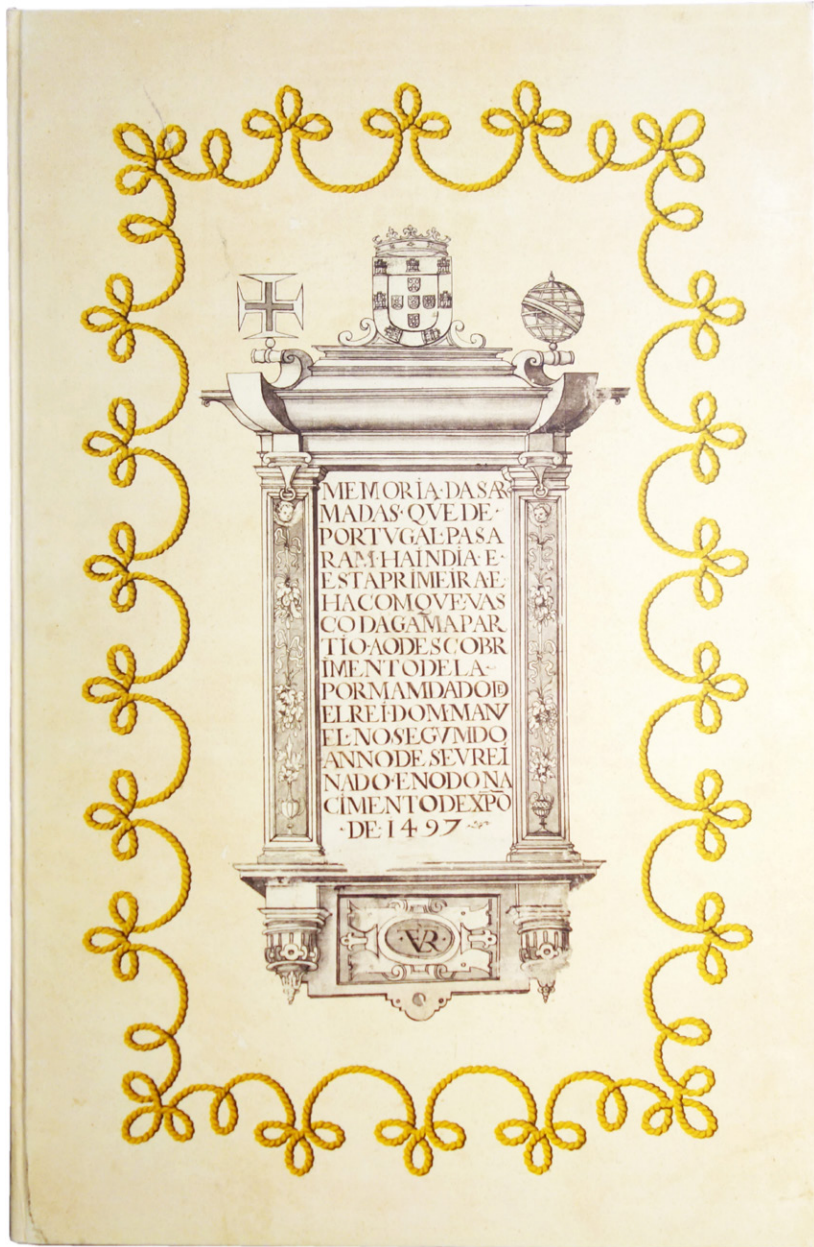 MEMORIA·DASAR
MADAS·QVE DE·
PORTVGAL·PASA
RAM·HAINDIA·E·
ESTAPRIMEIRAE
HACOMQVEVAS
CODAGAMAPAR
TIO·AODESCOBR
IMENTODELA·
PORMAMDADODE
ELREI·DOMMANV
EL·NOSEGVMDO
ANNODE SEVREI
NADO·ENODONA
CIMENTODEXP̄O
·DE·1497
·VR·